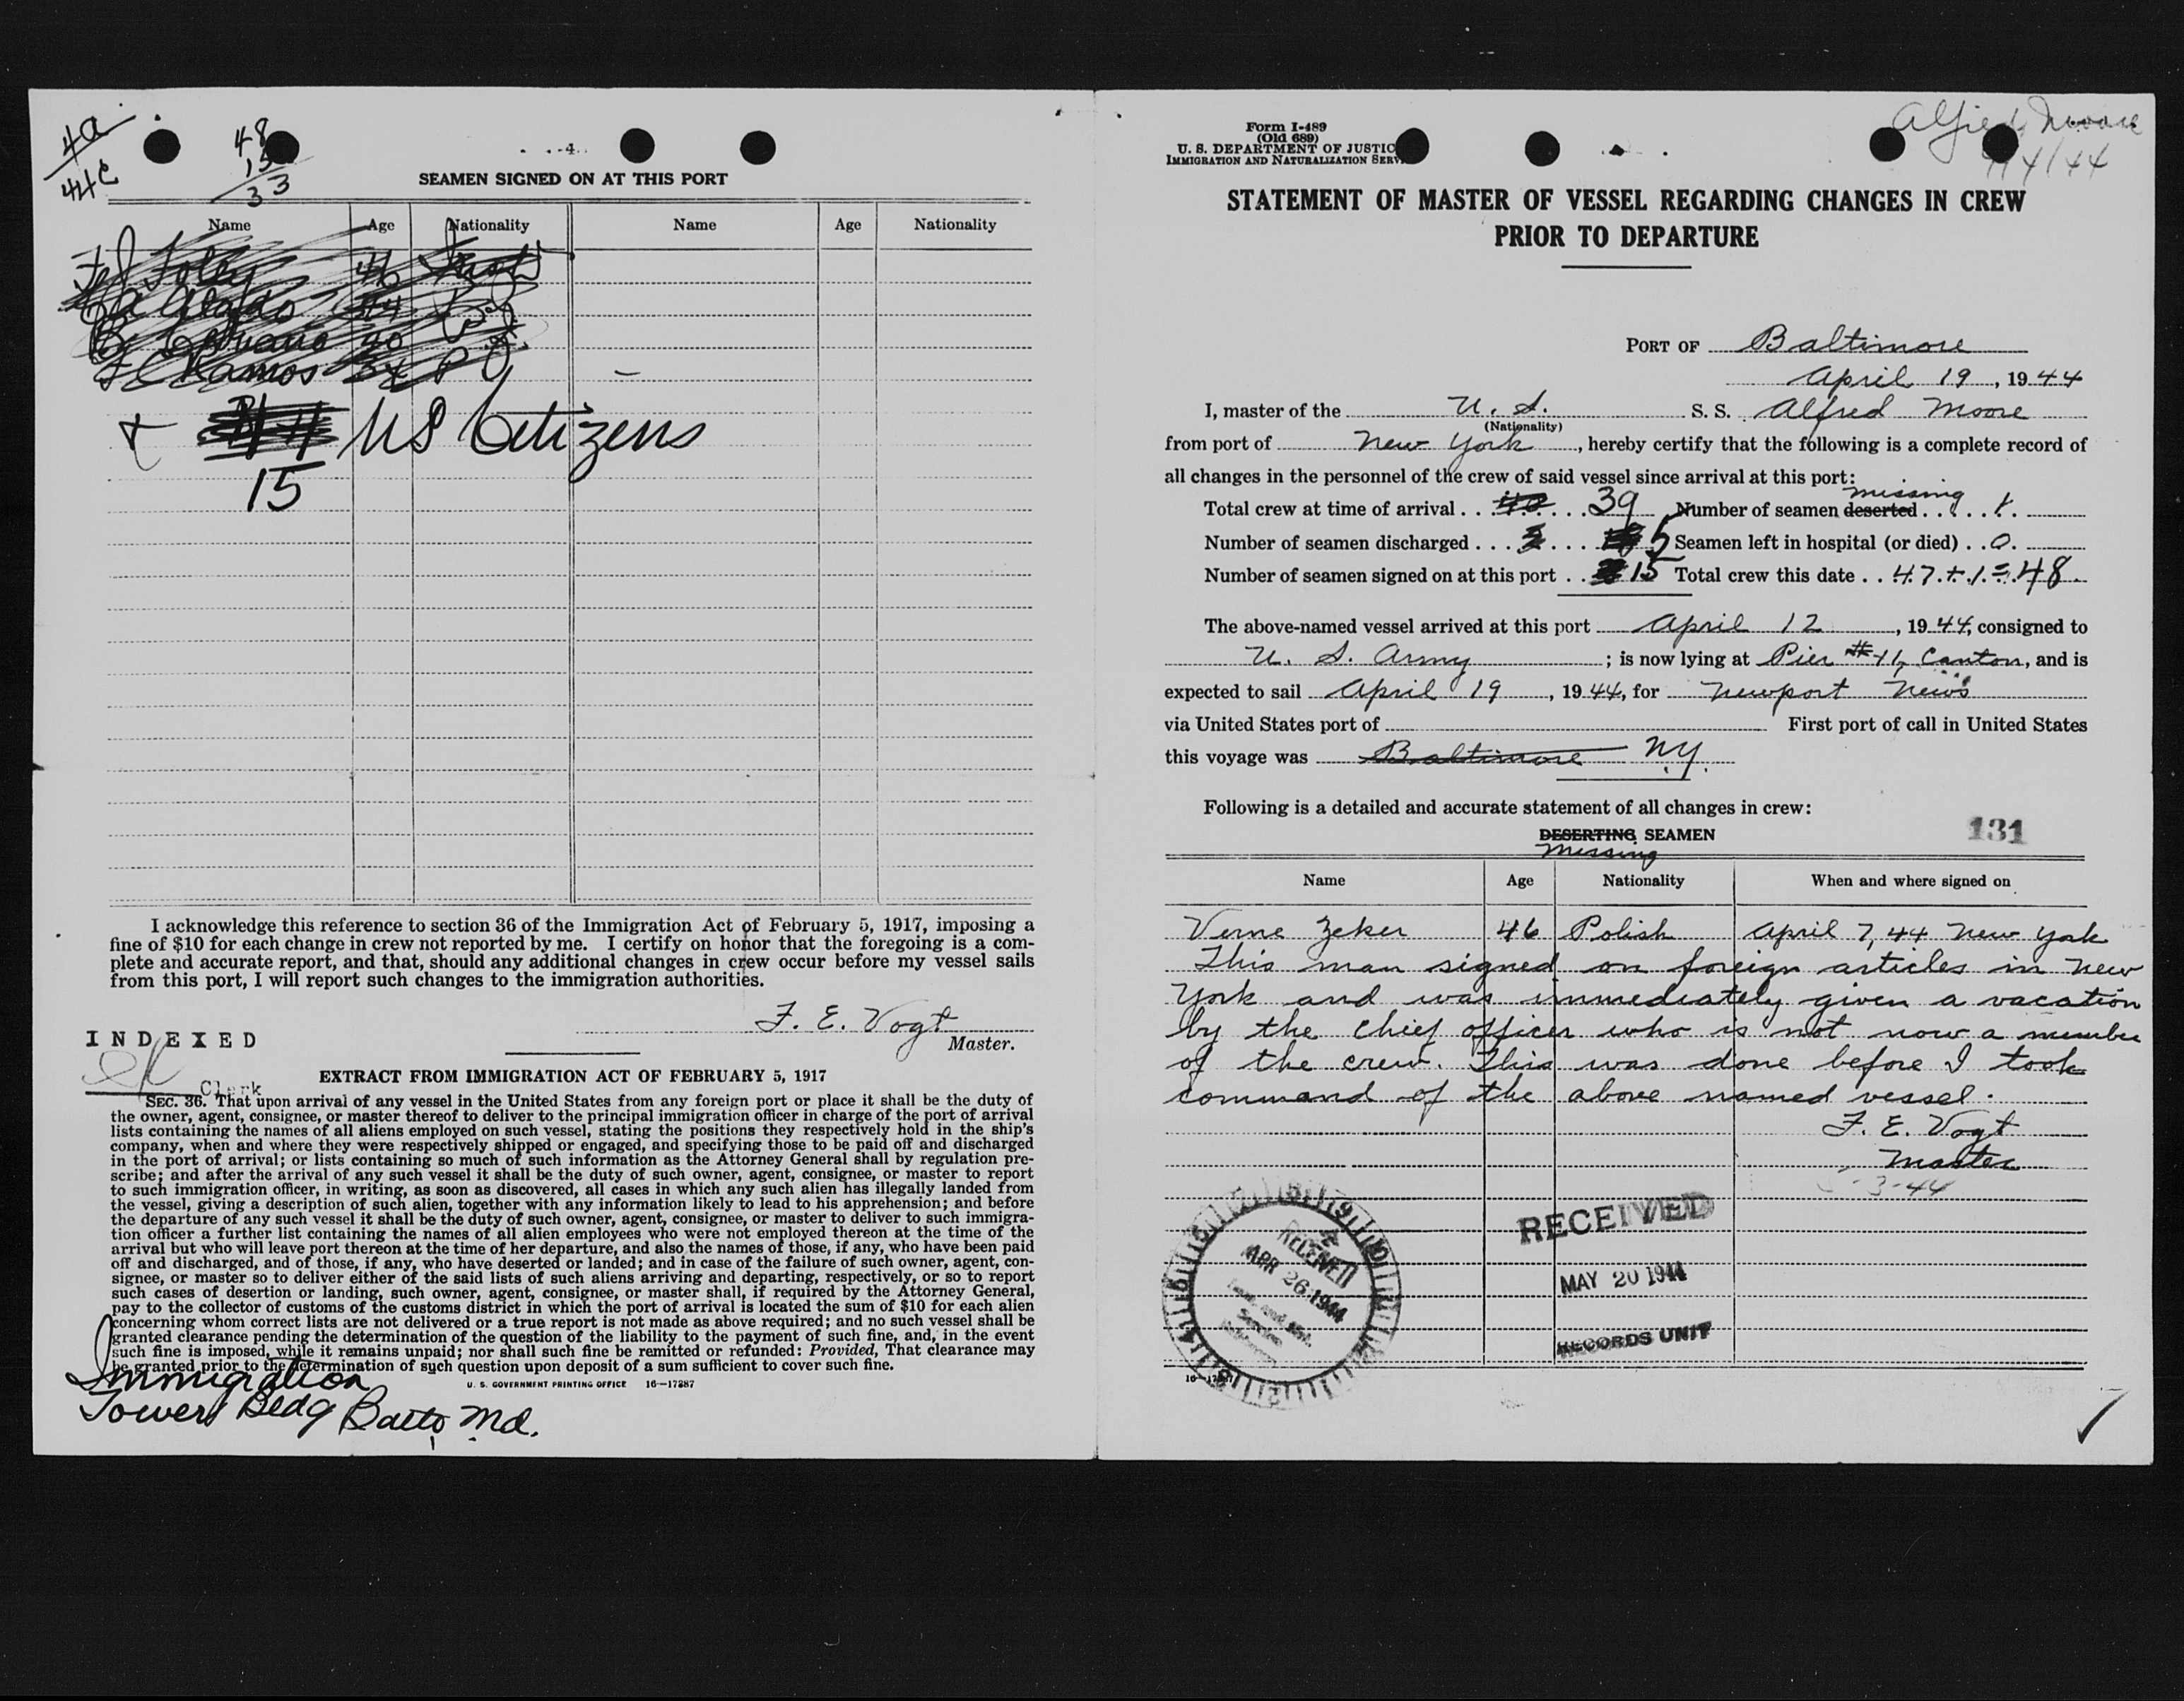 4a
44c
48
15
33
-4-
SEAMEN SIGNED ON AT THIS PORT
Name Age Nationality Name Age Nationality
Foley 46
44
30
Ramos 34 P
US Citizens
15
I acknowledge this reference to section 36 of the Immigration Act of February 5, 1917, imposing a
fine of $10 for each change in crew not reported by me. I certify on honor that the foregoing is a com-
plete and accurate report, and that, should any additional changes in crew occur before my vessel sails
from this port, I will report such changes to the immigration authorities.
F. E. Vogt
Master.
INDEXED
Clerk
EXTRACT FROM IMMIGRATION ACT OF FEBRUARY 5, 1917
SEC. 36. That upon arrival of any vessel in the United States from any foreign port or place it shall be the duty of
the owner, agent, consignee, or master thereof to deliver to the principal immigration officer in charge of the port of arrival
lists containing the names of all aliens employed on such vessel, stating the positions they respectively hold in the ship's
company, when and where they were respectively shipped or engaged, and specifying those to be paid off and discharged
in the port of arrival; or lists containing so much of such information as the Attorney General shall by regulation pre-
scribe; and after the arrival of any such vessel it shall be the duty of such owner, agent, consignee, or master to report
to such immigration officer, in writing, as soon as discovered, all cases in which any such alien has illegally landed from
the vessel, giving a description of such alien, together with any information likely to lead to his apprehension; and before
the departure of any such vessel it shall be the duty of such owner, agent, consignee, or master to deliver to such immigra-
tion officer a further list containing the names of all alien employees who were not employed thereon at the time of the
arrival but who will leave port thereon at the time of her departure, and also the names of those, if any, who have been paid
off and discharged, and of those, if any, who have deserted or landed; and in case of the failure of such owner, agent, con-
signee, or master so to deliver either of the said lists of such aliens arriving and departing, respectively, or so to report
such cases of desertion or landing, such owner, agent, consignee, or master shall, if required by the Attorney General,
pay to the collector of customs of the customs district in which the port of arrival is located the sum of $10 for each alien
concerning whom correct lists are not delivered or a true report is not made as above required; and no such vessel shall be
granted clearance pending the determination of the question of the liability to the payment of such fine, and, in the event
such fine is imposed, while it remains unpaid; nor shall such fine be remitted or refunded: Provided, That clearance may
be granted prior to the determination of such question upon deposit of a sum sufficient to cover such fine.
U. S. GOVERNMENT PRINTING OFFICE 16-17287
Immigration
Towers Bldg Balto Md.
Alfred Moore
4/4/44
Form I-489
(Old 689)
U. S. DEPARTMENT OF JUSTIC
IMMIGRATION AND NATURALIZATION SERV
STATEMENT OF MASTER OF VESSEL REGARDING CHANGES IN CREW
PRIOR TO DEPARTURE
PORT OF Baltimore
April 19, 1944
I, master of the U. S. S. S. Alfred Moore
(Nationality)
from port of New York, hereby certify that the following is a complete record of
all changes in the personnel of the crew of said vessel since arrival at this port:
missing
Total crew at time of arrival . . . 39 Number of seamen deserted . . . . . 1.
Number of seamen discharged . . . 5 Seamen left in hospital (or died) . . 0.
Number of seamen signed on at this port . . 15 Total crew this date . . 47 + 1 = 48
The above-named vessel arrived at this port April 12, 1944, consigned to
U. S. Army; is now lying at Pier #11, Canton, and is
expected to sail April 19, 1944, for Newport News
via United States port of First port of call in United States
this voyage was Baltimore N.Y.
Following is a detailed and accurate statement of all changes in crew:
DESERTING SEAMEN
Missing
131
Name Age Nationality When and where signed on
Verne Zeker 46 Polish April 7, 44 New York
This man signed on foreign articles in New
York and was immediately given a vacation
by the chief officer who is not now a member
of the crew. This was done before I took
command of the above named vessel.
F. E. Vogt
Master
3-44
RECEIVED
APR 26 1944
RECEIVED
MAY 20 1944
RECORDS UNIT